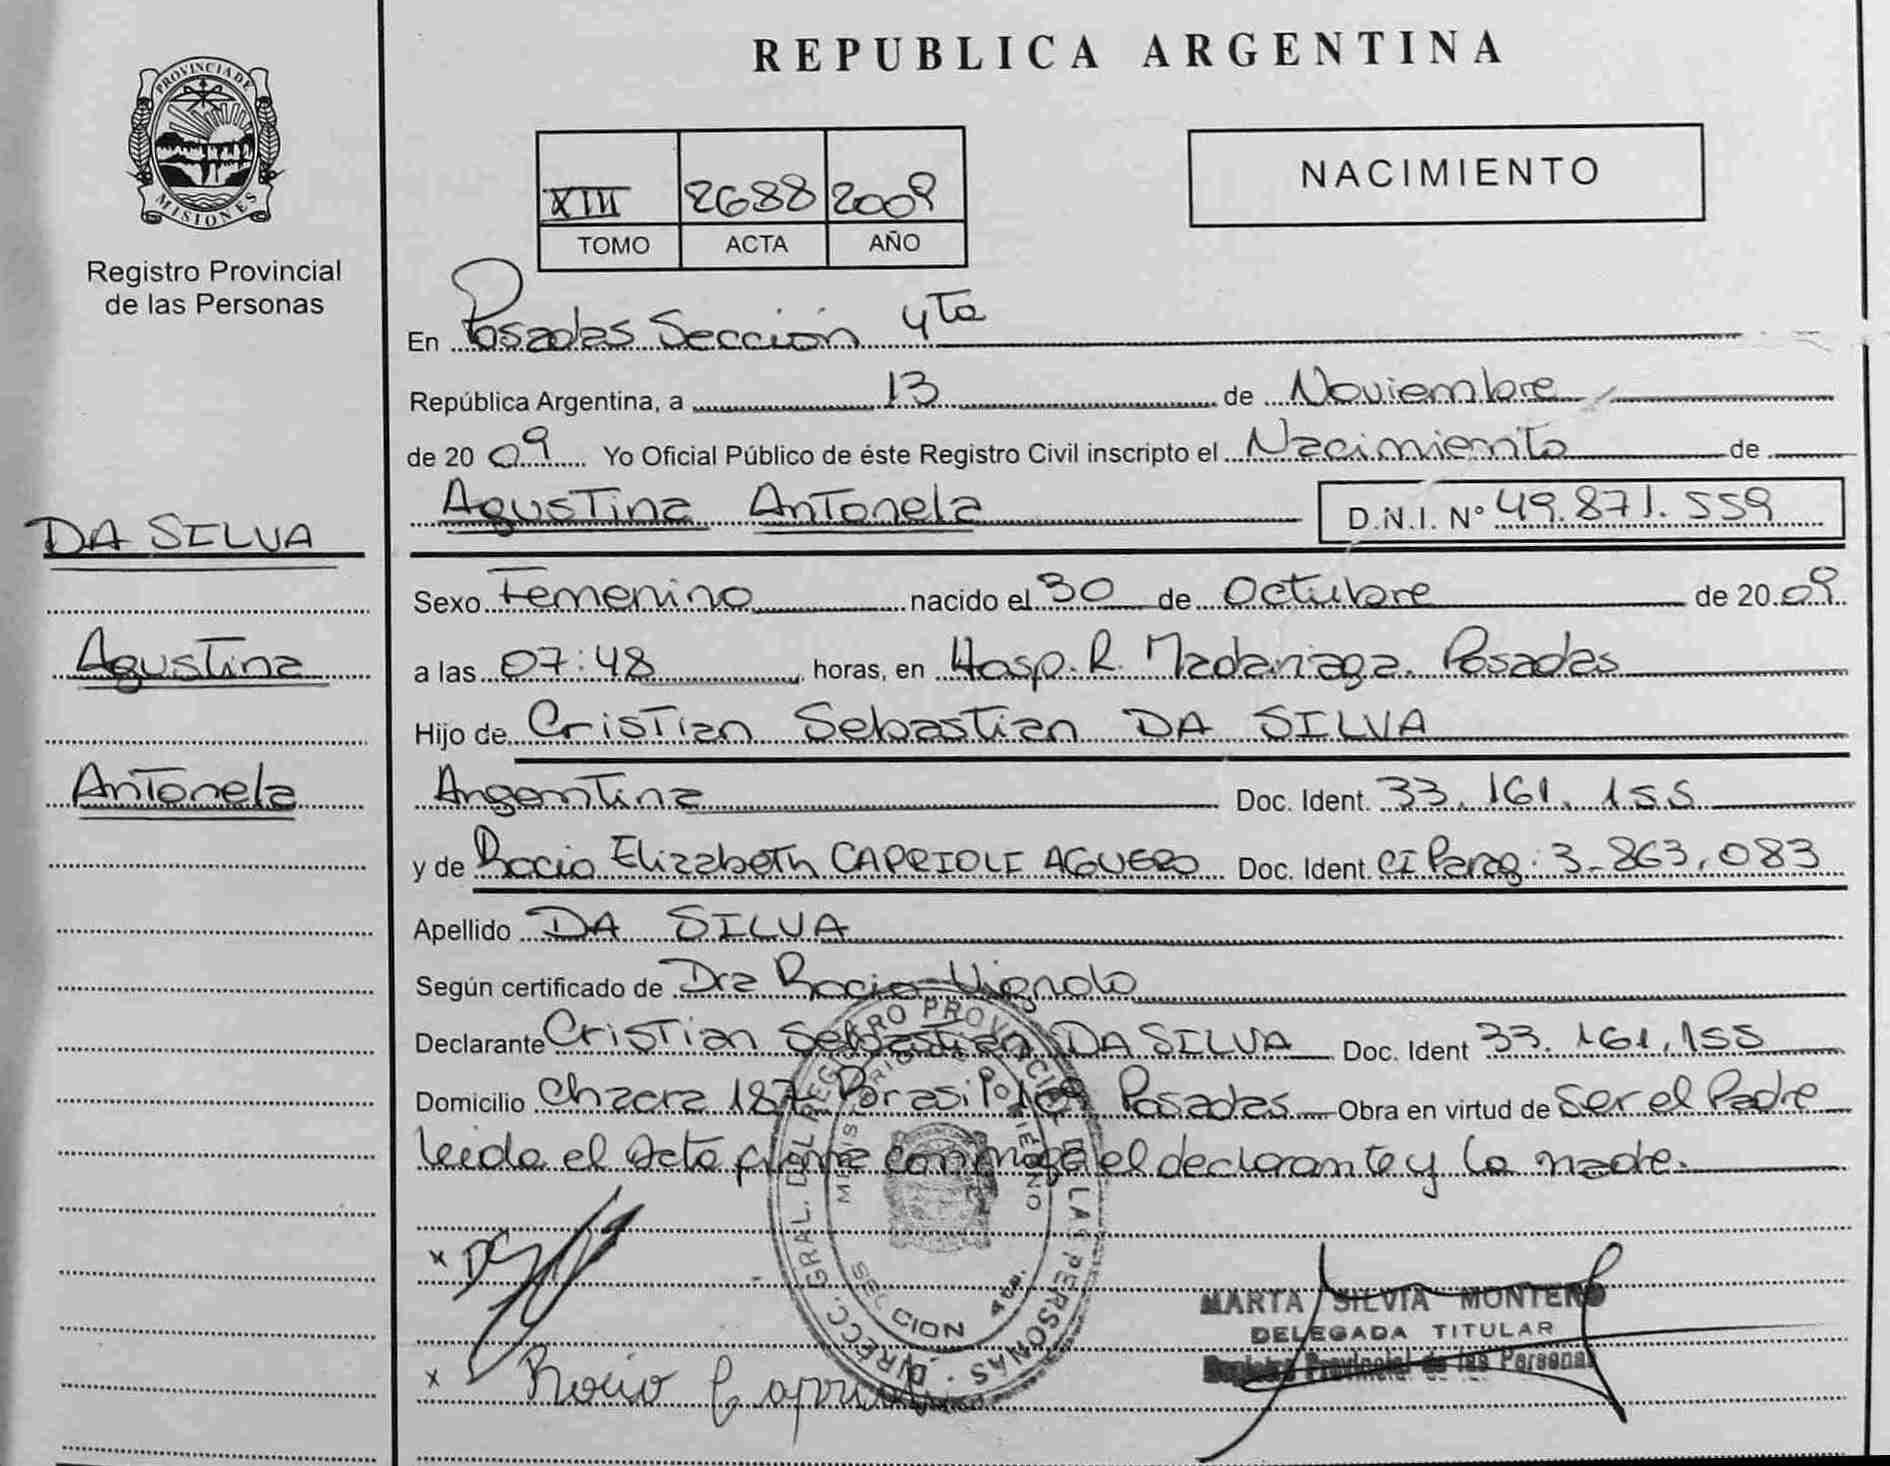 PROVINCIA DE
MISIONES
Registro Provincial
de las Personas
DA SILVA
Agustina
Antonela
REPUBLICA ARGENTINA
XIII 2688 2009
TOMO ACTA AÑO
NACIMIENTO
En Posadas Sección 4ta
República Argentina, a 13 de Noviembre
de 20 09 Yo Oficial Público de éste Registro Civil inscripto el Nacimiento de
Agustina Antonela D.N.I. Nº 49.871.559
Sexo Femenino nacido el 30 de Octubre de 20 09
a las 07:48 horas, en Hosp. R. Madariaga. Posadas
Hijo de Cristian Sebastian DA SILVA
Argentina Doc. Ident. 33.161.155
y de Rocio Elizabeth CAPRIOLI AGUERO Doc. Ident. CI Parag: 3-863.083
Apellido DA SILVA
Según certificado de Dra Rocio Vignolo
Declarante Cristian Sebastian DA SILVA Doc. Ident 33.161.155
Domicilio Chacra 187 Posadas Obra en virtud de Ser el Padre
leida el acta firma conmigo el declarante y la madre.
DIRECC. GRAL. DEL REGISTRO PROVINCIAL DE LAS PERSONAS
SECCION 4ta.
MARTA SILVIA MONTERO
DELEGADA TITULAR
Registro Provincial de las Personas
x
x Rocio Caprioli